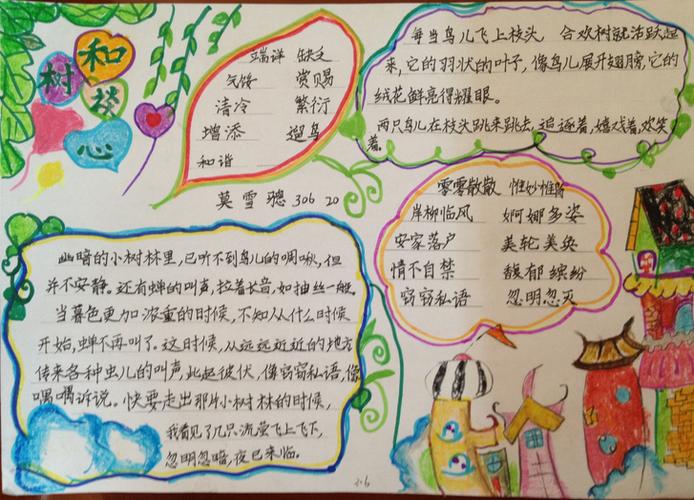 和
树 谈
心
端详 缺乏
气馁 赏赐
清冷 繁衍
增添 遛鸟
和谐
莫雪璁 306 20
每当鸟儿飞上枝头 合欢树就活跃起
来,它的羽状的叶子,像鸟儿展开翅膀,它的
绒花鲜亮得耀眼。
两只鸟儿在枝头跳来跳去,追逐着,嬉戏着,欢笑
着。
零零散散 惟妙惟肖
岸柳临风 婀娜多姿
安家落户 美轮美奂
情不自禁 馥郁缤纷
窃窃私语 忽明忽灭
幽暗的小树林里,已听不到鸟儿的啁啾,但
并不安静。还有蝉的叫声,拉着长音,如抽丝一般。
当暮色更加浓重的时候,不知从什么时候
开始,蝉不再叫了。这时候,从远远近近的地方
传来各种虫儿的叫声,此起彼伏,像窃窃私语,像
喁喁诉说。快要走出那片小树林的时候,
我看见了几只流萤飞上飞下,
忽明忽暗,夜已来临。